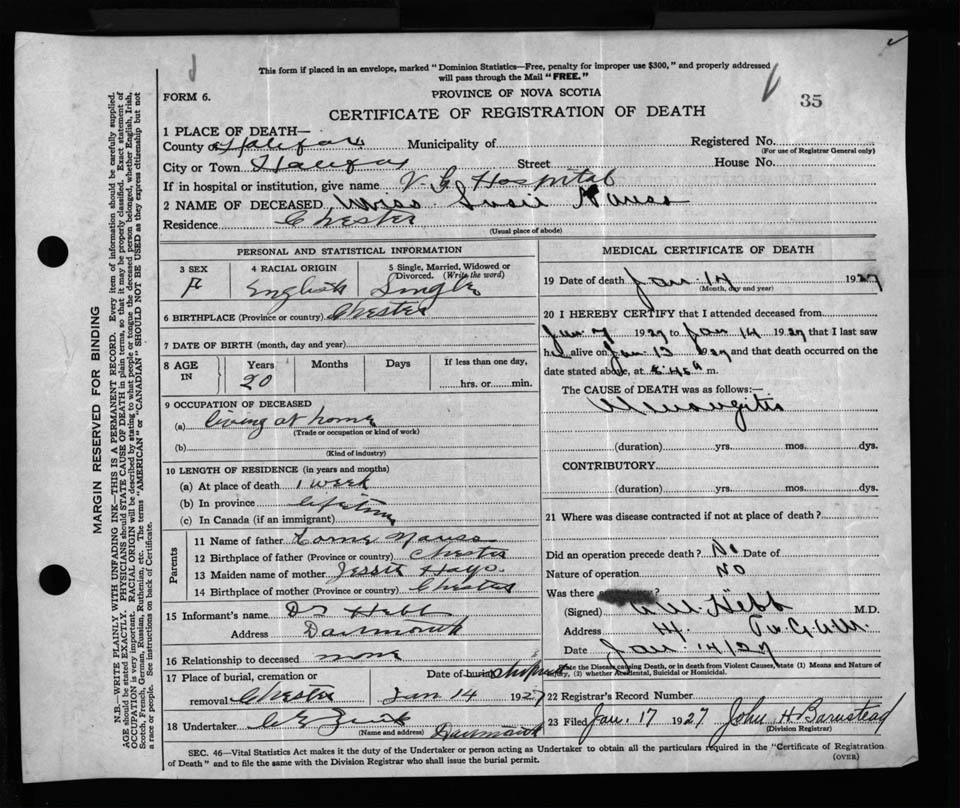 This form if placed in an envelope, marked "Dominion Statistics—Free, penalty for improper use $300," and properly addressed
will pass through the Mail "FREE."
FORM 6.
PROVINCE OF NOVA SCOTIA
35
CERTIFICATE OF REGISTRATION OF DEATH
1 PLACE OF DEATH—
County of Halifax Municipality of Registered No.
(For use of Registrar General only)
City or Town Halifax Street House No.
If in hospital or institution, give name V. G. Hospital
2 NAME OF DECEASED Miss Susie Nauss
Residence Chester
(Usual place of abode)
PERSONAL AND STATISTICAL INFORMATION
3 SEX 4 RACIAL ORIGIN 5 Single, Married, Widowed or
Divorced. (Write the word)
F English Single
6 BIRTHPLACE (Province or country) Chester
7 DATE OF BIRTH (month, day and year)
8 AGE Years Months Days If less than one day,
IN 20 hrs. or min.
9 OCCUPATION OF DECEASED
(a) living at home
(Trade or occupation or kind of work)
(b)
(Kind of industry)
10 LENGTH OF RESIDENCE (in years and months)
(a) At place of death 1 week
(b) In province lifetime
(c) In Canada (if an immigrant)
Parents
11 Name of father Nauss
12 Birthplace of father (Province or country) Chester
13 Maiden name of mother Jessie
14 Birthplace of mother (Province or country) Chester
15 Informant's name Dr Hebb
Address Dartmouth
16 Relationship to deceased none
17 Place of burial, cremation or Date of burial
removal Chester Jan 14 1927
18 Undertaker
(Name and address) Dartmouth
MEDICAL CERTIFICATE OF DEATH
19 Date of death Jan. 14 1927
(Month, day and year)
20 I HEREBY CERTIFY that I attended deceased from
Jan 7 1927 to Jan 14 1927 that I last saw
h alive on Jan 13 1927 and that death occurred on the
date stated above, at 8.45 a m.
The CAUSE of DEATH was as follows:—
Meningitis
(duration) yrs. mos. dys.
CONTRIBUTORY
(duration) yrs. mos. dys.
21 Where was disease contracted if not at place of death?
Did an operation precede death? No Date of
Nature of operation No
Was there
(Signed) Hebb M.D.
Address
Date Jan. 14/27
State the Disease causing Death, or in death from Violent Causes, state (1) Means and Nature of
Injury, (2) whether Accidental, Suicidal or Homicidal.
22 Registrar's Record Number
23 Filed Jan. 17 1927 John H Barnstead
(Division Registrar)
SEC. 46—Vital Statistics Act makes it the duty of the Undertaker or person acting as Undertaker to obtain all the particulars required in the "Certificate of Registration
of Death" and to file the same with the Division Registrar who shall issue the burial permit.
(OVER)
MARGIN RESERVED FOR BINDING
N.B.—WRITE PLAINLY WITH UNFADING INK—THIS IS A PERMANENT RECORD. Every item of information should be carefully supplied.
AGE should be stated EXACTLY. PHYSICIANS should STATE CAUSE OF DEATH in plain terms, so that it may be properly classified. Exact statement of
OCCUPATION is very important. RACIAL ORIGIN will be described by stating to what people or tongue the deceased person belonged, whether English, Irish,
Scotch, French, German, Russian, Ruthenian, etc. The terms "AMERICAN" or "CANADIAN" SHOULD NOT BE USED as they express citizenship but not
a race or people. See instructions on back of Certificate.